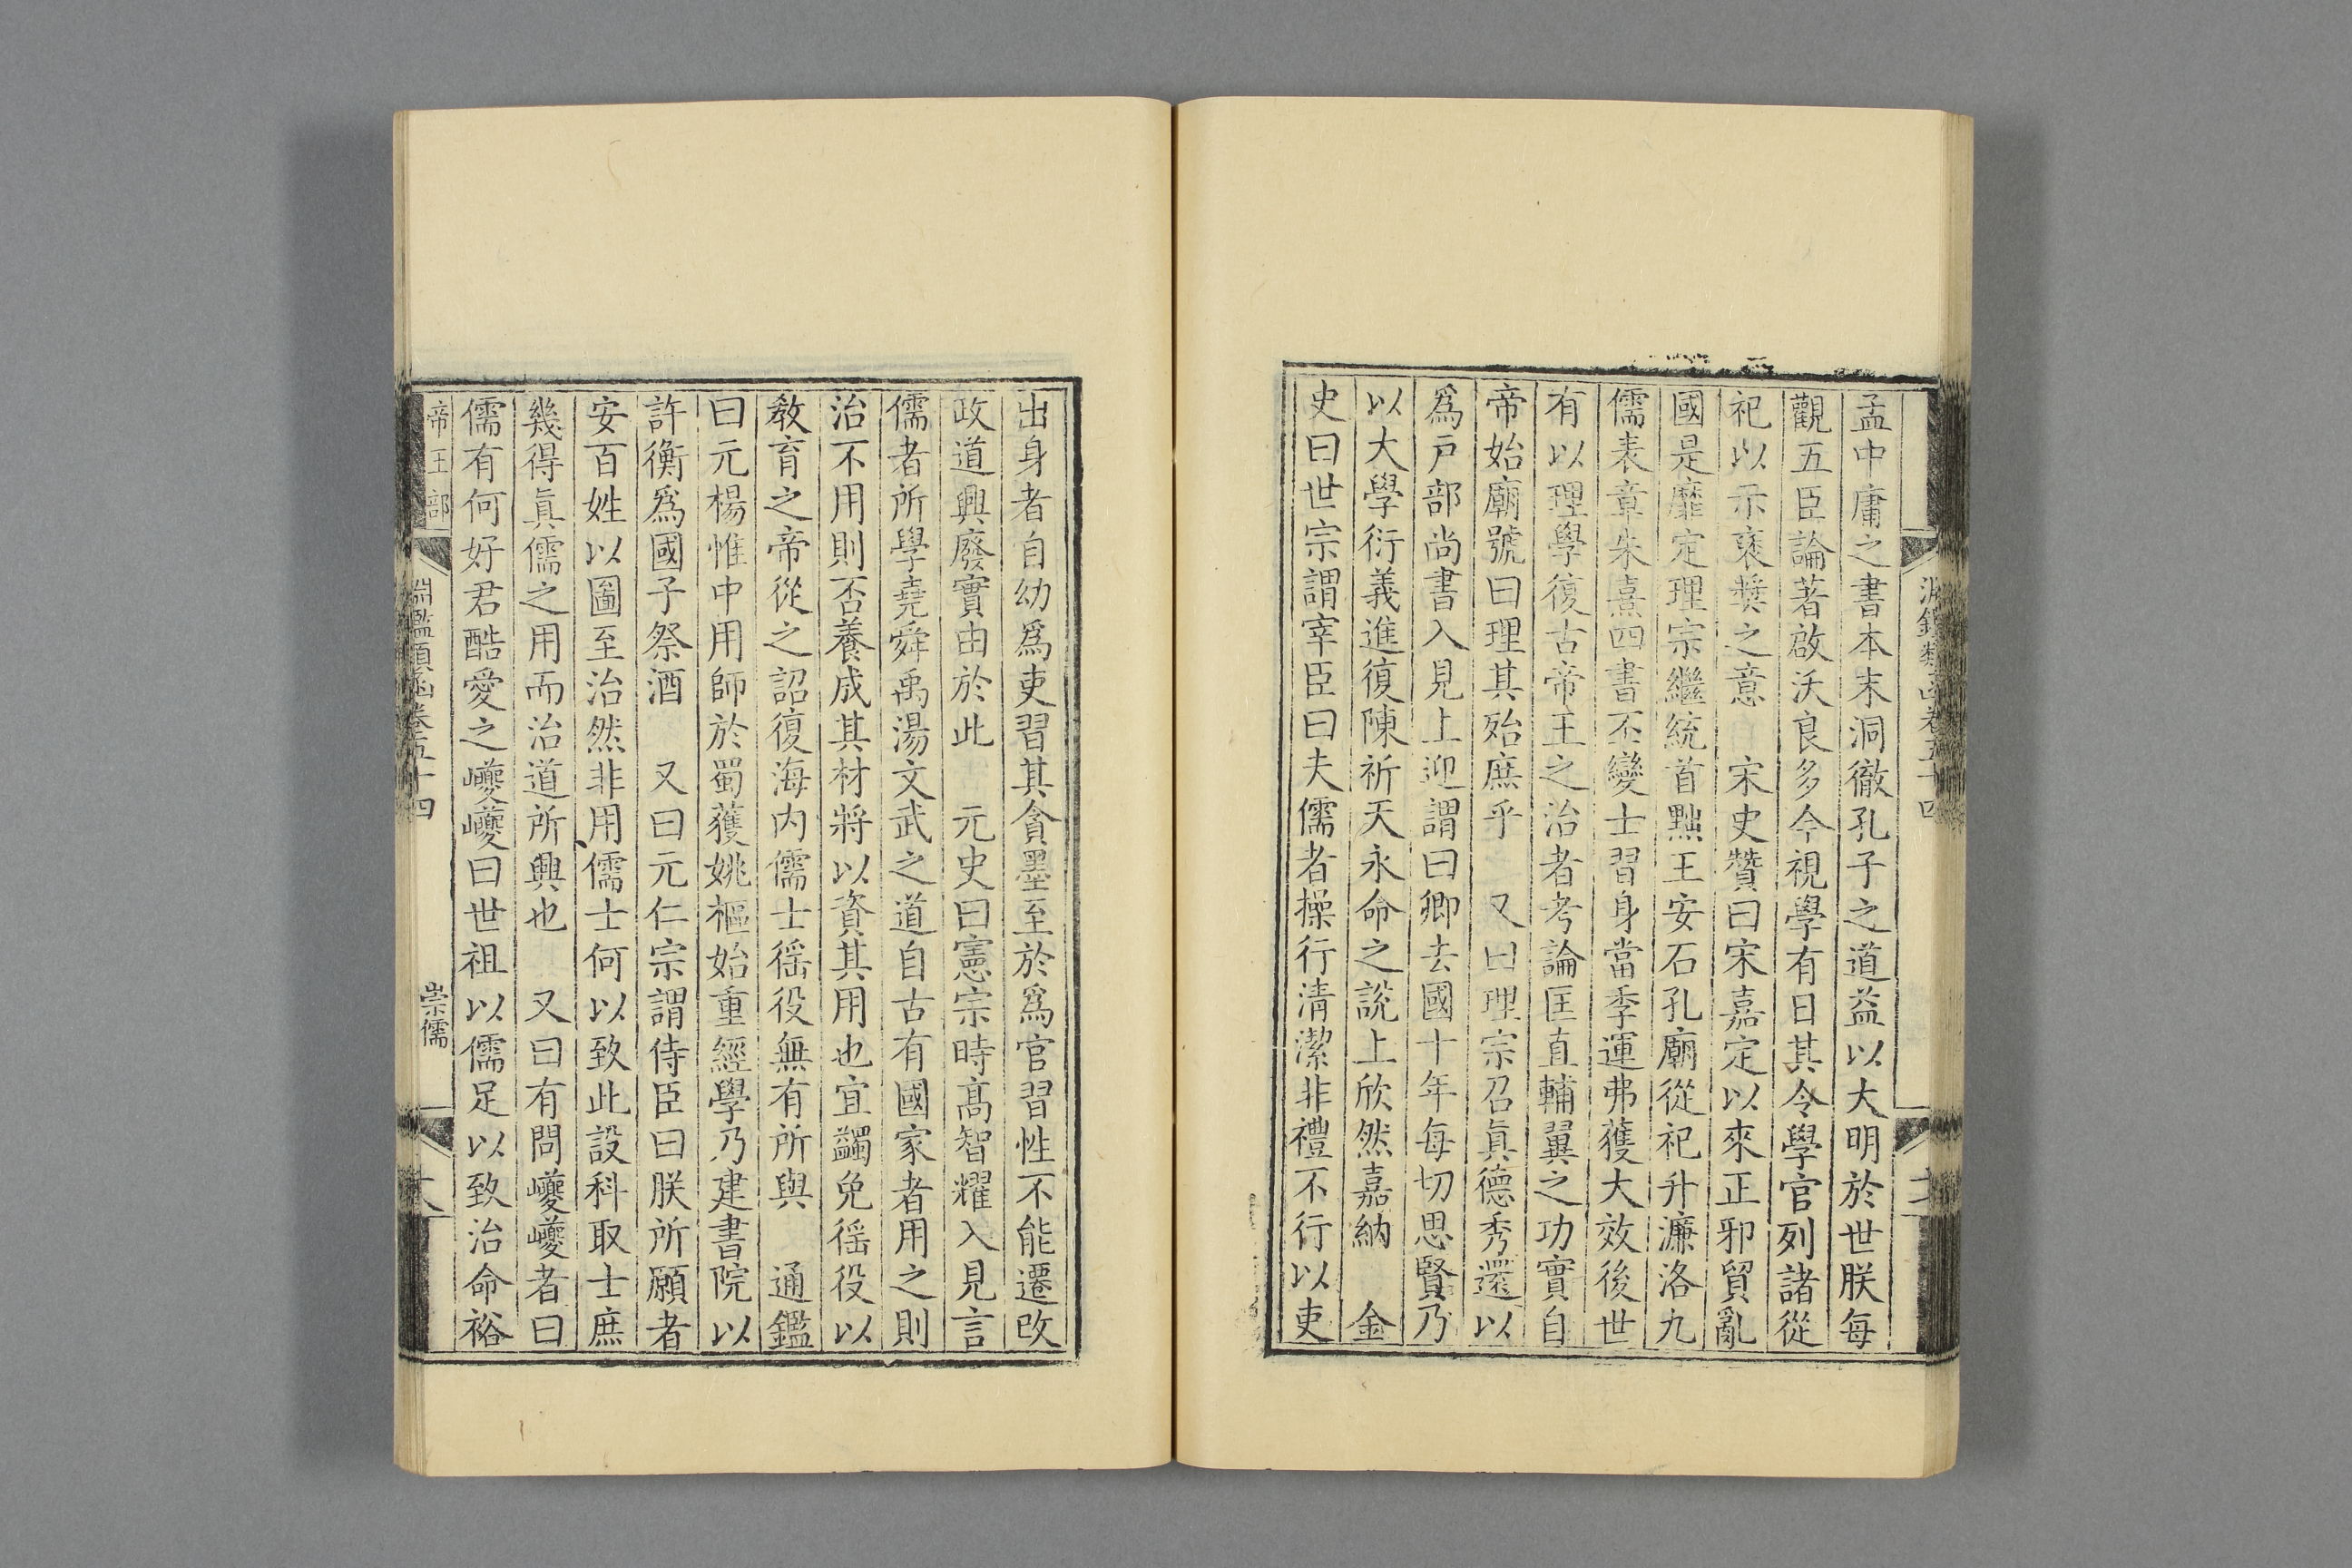 淵鑑類函卷五十四
孟中庸之書本末洞徹孔子之道益以大明於世朕每
觀五臣論著啟沃良多今視學有日其令學官列諸從
祀以示褒奬之意　宋史贊曰宋嘉定以來正邪貿亂
國是靡定理宗繼統首黜王安石孔廟從祀升濂洛九
儒表章朱熹四書丕變士習身當季運弗獲大效後世
有以理學復古帝王之治者考論匡直輔翼之功實自
帝始廟號曰理其殆庶乎　又曰理宗召眞德秀還以
爲戸部尚書入見上迎謂曰卿去國十年每切思賢乃
以大學衍義進復陳祈天永命之説上欣然嘉納　金
史曰世宗謂宰臣曰夫儒者操行清潔非禮不行以吏
出身者自幼爲吏習其貪墨至於爲官習性不能遷改
政道興廢實由於此　元史曰憲宗時髙智耀入見言
儒者所學堯舜禹湯文武之道自古有國家者用之則
治不用則否養成其材將以資其用也宜蠲免徭役以
敎育之帝從之詔復海内儒士徭役無有所與　通鑑
曰元楊惟中用師於蜀獲姚樞始重經學乃建書院以
許衡爲國子祭酒　又曰元仁宗謂侍臣曰朕所願者
安百姓以圖至治然非用儒士何以致此設科取士庶
幾得眞儒之用而治道所興也　又曰有問巙巙者曰
儒有何好君酷愛之巙巙曰世祖以儒足以致治命裕
帝王部　淵鑑類函卷五十四　崇儒